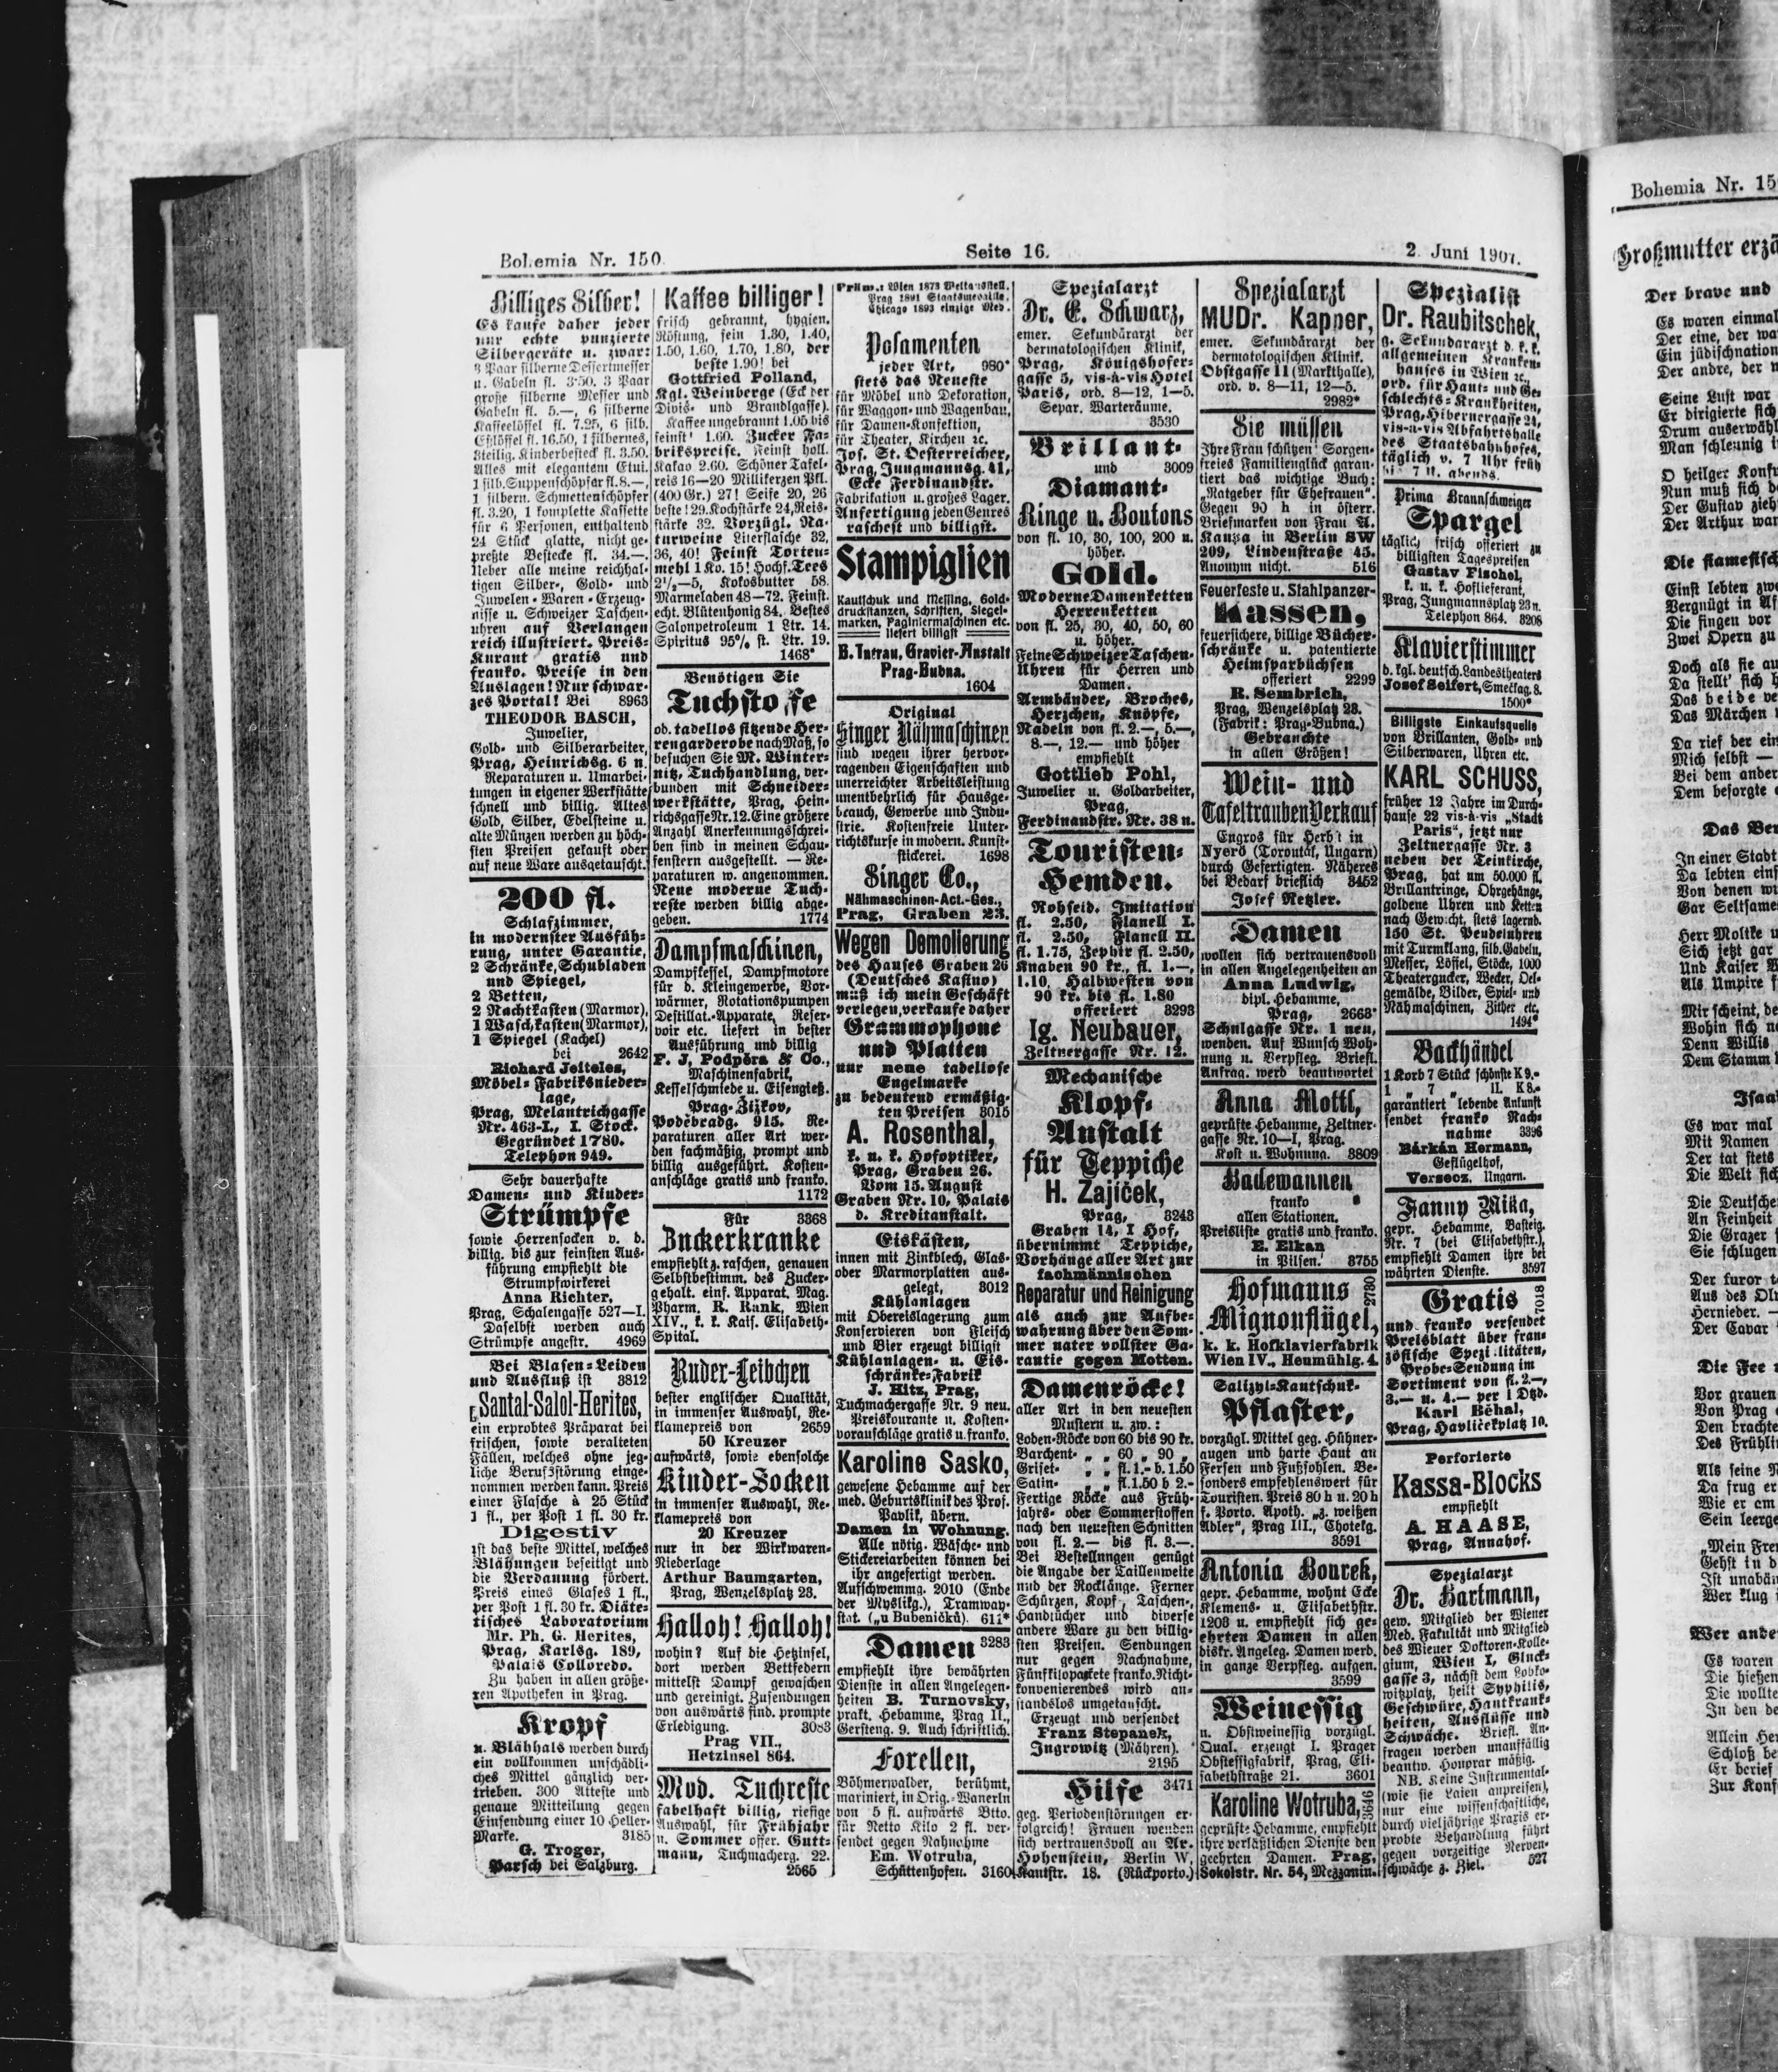 Bohemia Nr. 150.
Seite 16.
2. Juni 1907.
Billiges Silber!
Es kaufe daher jeder
nur echte punzierte
Silbergeräte u. zwar:
3 Paar silberne Dessertmesser
u. Gabeln fl. 3·50. 3 Paar
große silberne Messer und
Gabeln fl. 5.—, 6 silberne
Kaffeelöffel fl. 7.25, 6 silb.
Eßlöffel fl. 16.50, 1 silbernes,
3teilig. Kinderbesteck fl. 3.50.
Alles mit elegantem Etui.
1 silb. Suppenschöpfer fl. 8.—,
1 silbern. Schmettenschöpfer
fl. 3.20, 1 komplette Kassette
für 6 Personen, enthaltend
24 Stück glatte, nicht ge-
preßte Bestecke fl. 34.—.
Ueber alle meine reichhal-
tigen Silber-, Gold- und
Juwelen-Waren-Erzeug-
nisse u. Schweizer Taschen-
uhren auf Verlangen
reich illustriert. Preis-
Kurant gratis und
franko. Preise in den
Auslagen! Nur schwar-
zes Portal! Bei 8963
THEODOR BASCH,
Juwelier,
Gold- und Silberarbeiter,
Prag, Heinrichsg. 6 n.
Reparaturen u. Umarbei-
tungen in eigener Werkstätte
schnell und billig. Altes
Gold, Silber, Edelsteine u.
alte Münzen werden zu höch-
sten Preisen gekauft oder
auf neue Ware ausgetauscht.
200 fl.
Schlafzimmer,
in modernster Ausfüh-
rung, unter Garantie,
2 Schränke, Schubladen
und Spiegel,
2 Betten,
2 Nachtkasten (Marmor),
1 Waschkasten (Marmor),
1 Spiegel (Kachel)
bei 2642
Richard Jeiteles,
Möbel-Fabriksnieder-
lage,
Prag, Melantrichgasse
Nr. 463-I., I. Stock.
Gegründet 1780.
Telephon 949.
Sehr dauerhafte
Damen- und Kinder-
Strümpfe
sowie Herrensocken v. d.
billig. bis zur feinsten Aus-
führung empfiehlt die
Strumpfwirkerei
Anna Richter,
Prag, Schalengasse 527—I.
Daselbst werden auch
Strümpfe angestr. 4969
Bei Blasen-Leiden
und Ausfluß ist 3812
Santal-Salol-Herites,
ein erprobtes Präparat bei
frischen, sowie veralteten
Fällen, welches ohne jeg-
liche Berufsstörung einge-
nommen werden kann. Preis
einer Flasche à 25 Stück
1 fl., per Post 1 fl. 30 kr.
Digestiv
ist das beste Mittel, welches
Blähungen beseitigt und
die Verdauung fördert.
Preis eines Glases 1 fl.,
per Post 1 fl. 30 kr. Diäte-
tisches Laboratorium
Mr. Ph. G. Herites,
Prag, Karlsg. 189,
Palais Colloredo.
Zu haben in allen größe-
ren Apotheken in Prag.
Kropf
u. Blähhals werden durch
ein vollkommen unschädli-
ches Mittel gänzlich ver-
trieben. 300 Atteste und
genaue Mitteilung gegen
Einsendung einer 10 Heller-
Marke. 3185
G. Troger,
Parsch bei Salzburg.
Kaffee billiger!
frisch gebrannt, hygien.
Röstung, fein 1.30, 1.40,
1.50, 1.60, 1.70, 1.80, der
beste 1.90! bei
Gottfried Polland,
Kgl. Weinberge (Eck der
Divis- und Brandlgasse).
Kaffee ungebrannt 1.05 bis
feinst 1.60. Zucker Fa-
brikspreise. Feinst holl.
Kakao 2.60. Schöner Tafel-
reis 16—20 Millikerzen Pfl.
(400 Gr.) 27! Seife 20, 26
beste! 29. Kochstärke 24, Reis-
stärke 32. Vorzügl. Na-
turweine Literflasche 32,
36, 40! Feinst Torten-
mehl 1 Ko. 15! Hochf. Tees
2½—5, Kokosbutter 58.
Marmeladen 48—72. Feinst.
echt. Blütenhonig 84. Bestes
Salonpetroleum 1 Ltr. 14.
Spiritus 95% st. Ltr. 19.
1468*
Benötigen Sie
Tuchstoffe
ob. tadellos sitzende Her-
rengarderobe nach Maß, so
besuchen Sie M. Winter-
nitz, Tuchhandlung, ver-
bunden mit Schneider-
werkstätte, Prag, Hein-
richsgasse Nr. 12. Eine größere
Anzahl Anerkennungsschrei-
ben sind in meinen Schau-
fenstern ausgestellt. — Re-
paraturen w. angenommen.
Neue moderne Tuch-
reste werden billig abge-
geben. 1774
Dampfmaschinen,
Dampfkessel, Dampfmotore
für d. Kleingewerbe, Vor-
wärmer, Rotationspumpen
Destillat.-Apparate, Reser-
voir etc. liefert in bester
Ausführung und billig
F. J. Podpěra & Co.,
Maschinenfabrik,
Kesselschmiede u. Eisengieß.
Prag-Žižkov,
Poděbradg. 915. Re-
paraturen aller Art wer-
den fachmäßig, prompt und
billig ausgeführt. Kosten-
anschläge gratis und franko.
1172
Für 3368
Zuckerkranke
empfiehlt z. raschen, genauen
Selbstbestimm. des Zucker-
gehalt. einf. Apparat. Mag.
Pharm. R. Rank, Wien
XIV., k. k. Kais. Elisabeth-
Spital.
Ruder-Leibchen
bester englischer Qualität,
in immenser Auswahl, Re-
klamepreis von 2659
50 Kreuzer
aufwärts, sowie ebensolche
Kinder-Socken
in immenser Auswahl, Re-
klamepreis von
20 Kreuzer
nur in der Wirkwaren-
Niederlage
Arthur Baumgarten,
Prag, Wenzelsplatz 23.
Halloh! Halloh!
wohin? Auf die Hetzinsel,
dort werden Bettfedern
mittelst Dampf gewaschen
und gereinigt. Zusendungen
von auswärts find. prompte
Erledigung. 3083
Prag VII.,
Hetzinsel 864.
Mod. Tuchreste
fabelhaft billig, riesige
Auswahl, für Frühjahr
u. Sommer offer. Gutt-
mann, Tuchmacherg. 22.
2565
Präm.: Wien 1873 Weltausstell.
Prag 1891 Staatsmedaille,
Chicago 1893 einzige Med.
Posamenten
jeder Art, 980*
stets das Neueste
für Möbel und Dekoration,
für Waggon- und Wagenbau,
für Damen-Konfektion,
für Theater, Kirchen ec.
Jos. St. Oesterreicher,
Prag, Jungmannsg. 41,
Ecke Ferdinandstr.
Fabrikation u. großes Lager.
Anfertigung jeden Genres
raschest und billigst.
Stampiglien
Kautschuk und Messing, Gold-
druckstanzen, Schriften, Siegel-
marken, Paginiermaschinen etc.
liefert billigst
B. Intrau, Gravier-Anstalt
Prag-Bubna.
1604
Original
Singer Nähmaschinen
sind wegen ihrer hervor-
ragenden Eigenschaften und
unerreichter Arbeitsleistung
unentbehrlich für Hausge-
brauch, Gewerbe und Indu-
strie. Kostenfreie Unter-
richtskurse in modern. Kunst-
stickerei. 1698
Singer Co.,
Nähmaschinen-Act.-Ges.,
Prag, Graben 23.
Wegen Demolierung
des Hauses Graben 26
(Deutsches Kasino)
muß ich mein Geschäft
verlegen, verkaufe daher
Grammophone
und Platten
nur neue tadellose
Engelmarke
zu bedeutend ermäßig-
ten Preisen 3015
A. Rosenthal,
k. u. k. Hofoptiker,
Prag, Graben 26.
Vom 15. August
Graben Nr. 10, Palais
d. Kreditanstalt.
Eiskästen,
innen mit Zinkblech, Glas-
oder Marmorplatten aus-
gelegt, 3012
Kühlanlagen
mit Obereislagerung zum
Konservieren von Fleisch
und Bier erzeugt billigst
Kühlanlagen- u. Eis-
schränke-Fabrik
J. Hitz, Prag,
Tuchmachergasse Nr. 9 neu.
Preiskourante u. Kosten-
voranschläge gratis u. franko.
Karoline Sasko,
gewesene Hebamme auf der
med. Geburtsklinik des Prof.
Pavlik, übern.
Damen in Wohnung.
Alle nötig. Wäsche- und
Stickereiarbeiten können bei
ihr angefertigt werden.
Aufschwemmg. 2010 (Ende
der Myslikg.), Tramway-
stat. („u Bubeničků). 611*
Damen 3283
empfiehlt ihre bewährten
Dienste in allen Angelegen-
heiten B. Turnovsky,
prakt. Hebamme, Prag II.,
Gersteng. 9. Auch schriftlich.
Forellen,
Böhmerwalder, berühmt,
mariniert, in Orig.-Wanerln
von 5 fl. aufwärts Btto.
für Netto Kilo 2 fl. ver-
sendet gegen Nahnohme
Em. Wotruba,
Schüttenhofen. 3160
Spezialarzt
Dr. E. Schwarz,
emer. Sekundärarzt der
dermatologischen Klinik,
Prag, Königshofer-
gasse 5, vis-à-vis Hotel
Paris, ord. 8—12, 1—5.
Separ. Warteräume.
3530
Brillant-
und 3009
Diamant-
Ringe u. Boutons
von fl. 10, 30, 100, 200 u.
höher.
Gold.
Moderne Damenketten
Herrenketten
von fl. 25, 30, 40, 50, 60
u. höher.
Feine Schweizer Taschen-
Uhren für Herren und
Damen.
Armbänder, Broches,
Herzchen, Knöpfe,
Nadeln von fl. 2.—, 5.—,
8.—, 12.— und höher
empfiehlt
Gottlieb Pohl,
Juwelier u. Goldarbeiter,
Prag,
Ferdinandstr. Nr. 38 n.
Touristen-
Hemden.
Rohseid. Imitation
fl. 2.50, Flanell I.
fl. 2.50, Flanell II.
fl. 1.75, Zephir fl. 2.50,
Knaben 90 kr., fl. 1.—,
1.10, Halbwesten von
90 kr. bis fl. 1.80
offeriert 3293
Ig. Neubauer,
Zeltnergasse Nr. 12.
Mechanische
Klopf-
Anstalt
für Teppiche
H. Zajíček,
Prag, 3243
Graben 14, I Hof,
übernimmt Teppiche,
Vorhänge aller Art zur
fachmännischen
Reparatur und Reinigung
als auch zur Aufbe-
wahrung über den Som-
mer unter vollster Ga-
rantie gegen Motten.
Damenröcke!
aller Art in den neuesten
Mustern u. zw.:
Loden-Röcke von 60 bis 90 kr.
Barchent- „ „ 60 „ 90 „
Griset- „ „ fl. 1.- b. 1.50
Satin- „ „ fl. 1.50 b 2.-
Fertige Röcke aus Früh-
jahrs- oder Sommerstoffen
nach den neuesten Schnitten
von fl. 2.— bis fl. 3.—.
Bei Bestellungen genügt
die Angabe der Taillenweite
und der Rocklänge. Ferner
Schürzen, Kopf-, Taschen-,
Handtücher und diverse
andere Ware zu den billig-
sten Preisen. Sendungen
nur gegen Nachnahme,
Fünfkilopakete franko. Nicht-
konvenierendes wird an-
standslos umgetauscht.
Erzeugt und versendet
Franz Stepanek,
Ingrowitz (Mähren).
2195
Hilfe 3471
geg. Periodenstörungen er-
folgreich! Frauen wenden
sich vertrauensvoll an Ar.
Hohenstein, Berlin W,
Kantstr. 18. (Rückporto.)
Spezialarzt
MUDr. Kapper,
emer. Sekundärarzt der
dermatologischen Klinik.
Obstgasse 11 (Markthalle),
ord. v. 8—11, 12—5.
2982*
Sie müssen
Ihre Frau schützen! Sorgen-
freies Familienglück garan-
tiert das wichtige Buch:
„Ratgeber für Ehefrauen“.
Gegen 90 h in österr.
Briefmarken von Frau A.
Kaupa in Berlin SW
209, Lindenstraße 45.
Anonym nicht. 516
Feuerfeste u. Stahlpanzer-
Kassen,
feuersichere, billige Bücher-
schränke u. patentierte
Heimsparbüchsen
offeriert 2299
R. Sembrich,
Prag, Wenzelsplatz 23.
(Fabrik: Prag-Bubna.)
Gebrauchte
in allen Größen!
Wein- und
Tafeltrauben Verkauf
Engros für Herbst in
Nyerö (Torontál, Ungarn)
durch Gefertigten. Näheres
bei Bedarf brieflich 3452
Josef Retzler.
Damen
wollen sich vertrauensvoll
in allen Angelegenheiten an
Anna Ludwig,
dipl. Hebamme,
Prag, 2663*
Schulgasse Nr. 1 neu,
wenden. Auf Wunsch Woh-
nung u. Verpfleg. Briefl.
Anfrag. werd beantwortet
Anna Mottl,
geprüfte Hebamme, Zeltner-
gasse Nr. 10—I, Prag.
Kost u. Wohnung. 3809
Badewannen
franko
allen Stationen.
Preisliste gratis und franko.
E. Elkan
in Pilsen. 3755
Hofmanns
Mignonflügel,
2780
k. k. Hofklavierfabrik
Wien IV., Heumühlg. 4.
Salizyl-Kautschuk-
Pflaster,
vorzügl. Mittel geg. Hühner-
augen und harte Haut an
Fersen und Fußsohlen. Be-
sonders empfehlenswert für
Touristen. Preis 80 h u. 20 h
f. Porto. Apoth. „z. weißen
Adler“, Prag III., Chotekg.
3591
Antonia Bourek,
gepr. Hebamme, wohnt Ecke
Klemens- u. Elisabethstr.
1203 u. empfiehlt sich ge-
ehrten Damen in allen
diskr. Angeleg. Damen werd.
in ganze Verpfleg. aufgen.
3599
Weinessig
u. Obstweinessig vorzügl.
Qual. erzeugt I. Prager
Obstessigfabrik, Prag, Eli-
sabethstraße 21. 3601
Karoline Wotruba,
3646
geprüfte Hebamme, empfiehlt
ihre verläßlichen Dienste den
geehrten Damen. Prag,
Sokolstr. Nr. 54, Mezzanin.
Spezialist
Dr. Raubitschek,
g. Sekundararzt d. k. k.
allgemeinen Kranken-
hauses in Wien ec.,
ord. für Haut- und Ge-
schlechts-Krankheiten,
Prag, Hibernergasse 24,
vis-à-vis Abfahrtshalle
des Staatsbahnhofes,
täglich v. 7 Uhr früh
bis 7 U. abends.
Prima Braunschweiger
Spargel
täglich frisch offeriert zu
billigsten Tagespreisen
Gustav Fischel,
k. u. k. Hoflieferant,
Prag, Jungmannsplatz 23 n.
Telephon 864. 3208
Klavierstimmer
d. kgl. deutsch. Landestheaters
Josef Seifert, Smečkag. 8.
1500*
Billigste Einkaufsquelle
von Brillanten, Gold- und
Silberwaren, Uhren etc.
KARL SCHUSS,
früher 12 Jahre im Durch-
hause 22 vis-à-vis „Stadt
Paris“, jetzt nur
Zeltnergasse Nr. 3
neben der Teinkirche,
Prag, hat um 50.000 fl.
Brillantringe, Ohrgehänge,
goldene Uhren und Ketten
nach Gewicht, stets lagernd.
150 St. Pendeluhren
mit Turmklang, silb. Gabeln,
Messer, Löffel, Stöcke, 1000
Theatergucker, Wecker, Oel-
gemälde, Bilder, Spiel- und
Nähmaschinen, Zither etc.
1494*
Backhändel
1 Korb 7 Stück schönste K 9.-
1 „ 7 „ II. K 8.-
garantiert lebende Ankunft
sendet franko Nach-
nahme 3396
Bárkán Hermann,
Geflügelhof,
Versecz, Ungarn.
Fanny Mika,
gepr. Hebamme, Basteig.
Nr. 7 (bei Elisabethstr.),
empfiehlt Damen ihre be-
währten Dienste. 3597
Gratis
7018
und franko versendet
Preisblatt über fran-
zösische Spezialitäten,
Probe-Sendung im
Sortiment von fl. 2.—,
3.— u. 4.— per 1 Dtzd.
Karl Běhal,
Prag, Havlíčekplatz 10.
Perforierte
Kassa-Blocks
empfiehlt
A. HAASE,
Prag, Annahof.
Spezialarzt
Dr. Hartmann,
gew. Mitglied der Wiener
Med. Fakultät und Mitglied
des Wiener Doktoren-Kolle-
gium, Wien I, Gluck-
gasse 3, nächst dem Lobko-
witzplatz, heilt Syphilis,
Geschwüre, Hautkrank-
heiten, Ausflüsse und
Schwäche. Briefl. An-
fragen werden unauffällig
beantw. Honorar mäßig.
NB. Keine Instrumental-
(wie sie Laien anpreisen),
nur eine wissenschaftliche,
durch vieljährige Praxis er-
probte Behandlung führt
gegen vorzeitige Nerven-
schwäche z. Ziel. 527
Bohemia Nr. 15
Großmutter erzä
Der brave und
Es waren einmal
Der eine, der war
Ein jüdischnation
Der andre, der n
Seine Lust war
Er dirigierte sich
Drum auserwähl
Man schleunig i
O heilger Konfu
Nun muß sich d
Der Gustav zieh
Der Arthur war
Die siamesisch
Einst lebten zwe
Vergnügt in Af
Die fingen vor
Zwei Opern zu
Doch als sie au
Da stellt' sich h
Das beide ve
Das Märchen
Da rief der ein
Mich selbst —
Bei dem ander
Dem besorgte
Das Ber
In einer Stadt
Da lebten einst
Von denen wu
Gar Seltsames
Herr Moltke u
Sich jetzt gar
Und Kaiser W
Als Umpire f
Mir scheint, de
Wohin sich n
Denn Willis
Dem Stamm
Isaa
Es war mal
Mit Namen
Der tat stets
Die Welt sich
Die Deutsche
An Feinheit
Die Grazer
Sie schlugen
Der furor t
Aus des Oly
Hernieder. —
Der Cavar
Die Fee
Vor grauen
Von Prag
Den brachte
Des Frühlin
Als seine N
Da frug er
Wie er am
Sein leerge
„Mein Fre
Gehst in d
Ist unabän
Wer klug
Wer ande
Es waren
Die hießen
Die wollte
In den be
Allein He
Schloß be
Er berief
Zur Konf